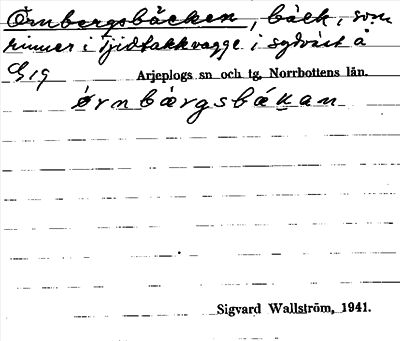 Örnbergsbäcken, bäck, som
rinner i Tjidtakkvagge i sydväst å
G 19 Arjeplogs sn och tg, Norrbottens län.
örnbärgsbäkan
Sigvard Wallström, 1941.